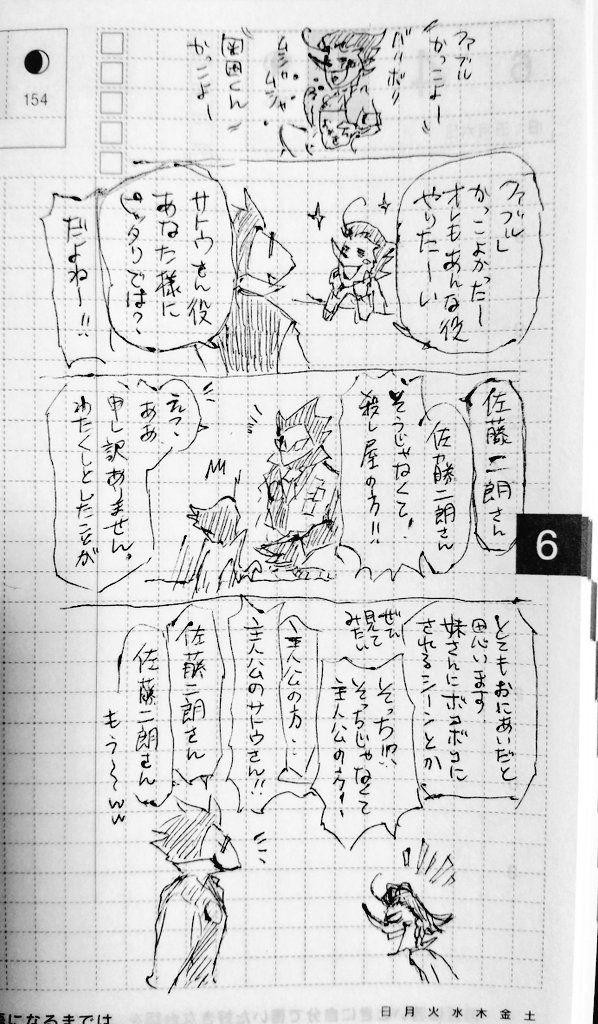 ファブル
かっこよー
バリボリ
ムシャムシャ
岡田くん
かっこよー
ファブル
かっこよかったー
オレもあんな役
やりたーい
サトウさん役
あなた様に
ピッタリでは?
だよねー!!
佐藤二朗さん
佐藤二朗さん
そうじゃなくて!
殺し屋の方!!
えっ、
ああ
申し訳ありません。
わたくしとしたことが
とてもおにあいだと
思います
妹さんにボコボコに
されるシーンとか
ぜひ
見て
みたい
そっち!?
そっちじゃなくて
主人公の方!!
主人公の方…
主人公のサトウさん!!
佐藤二朗さん
佐藤二朗さん
もう〜〜ww
154
6
日 月 火 水 木 金 土
になるまでは